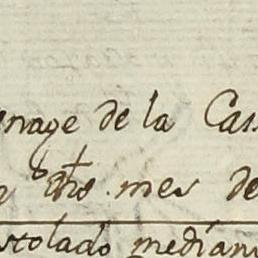 enage de la Cas
dho mes de
stolado median